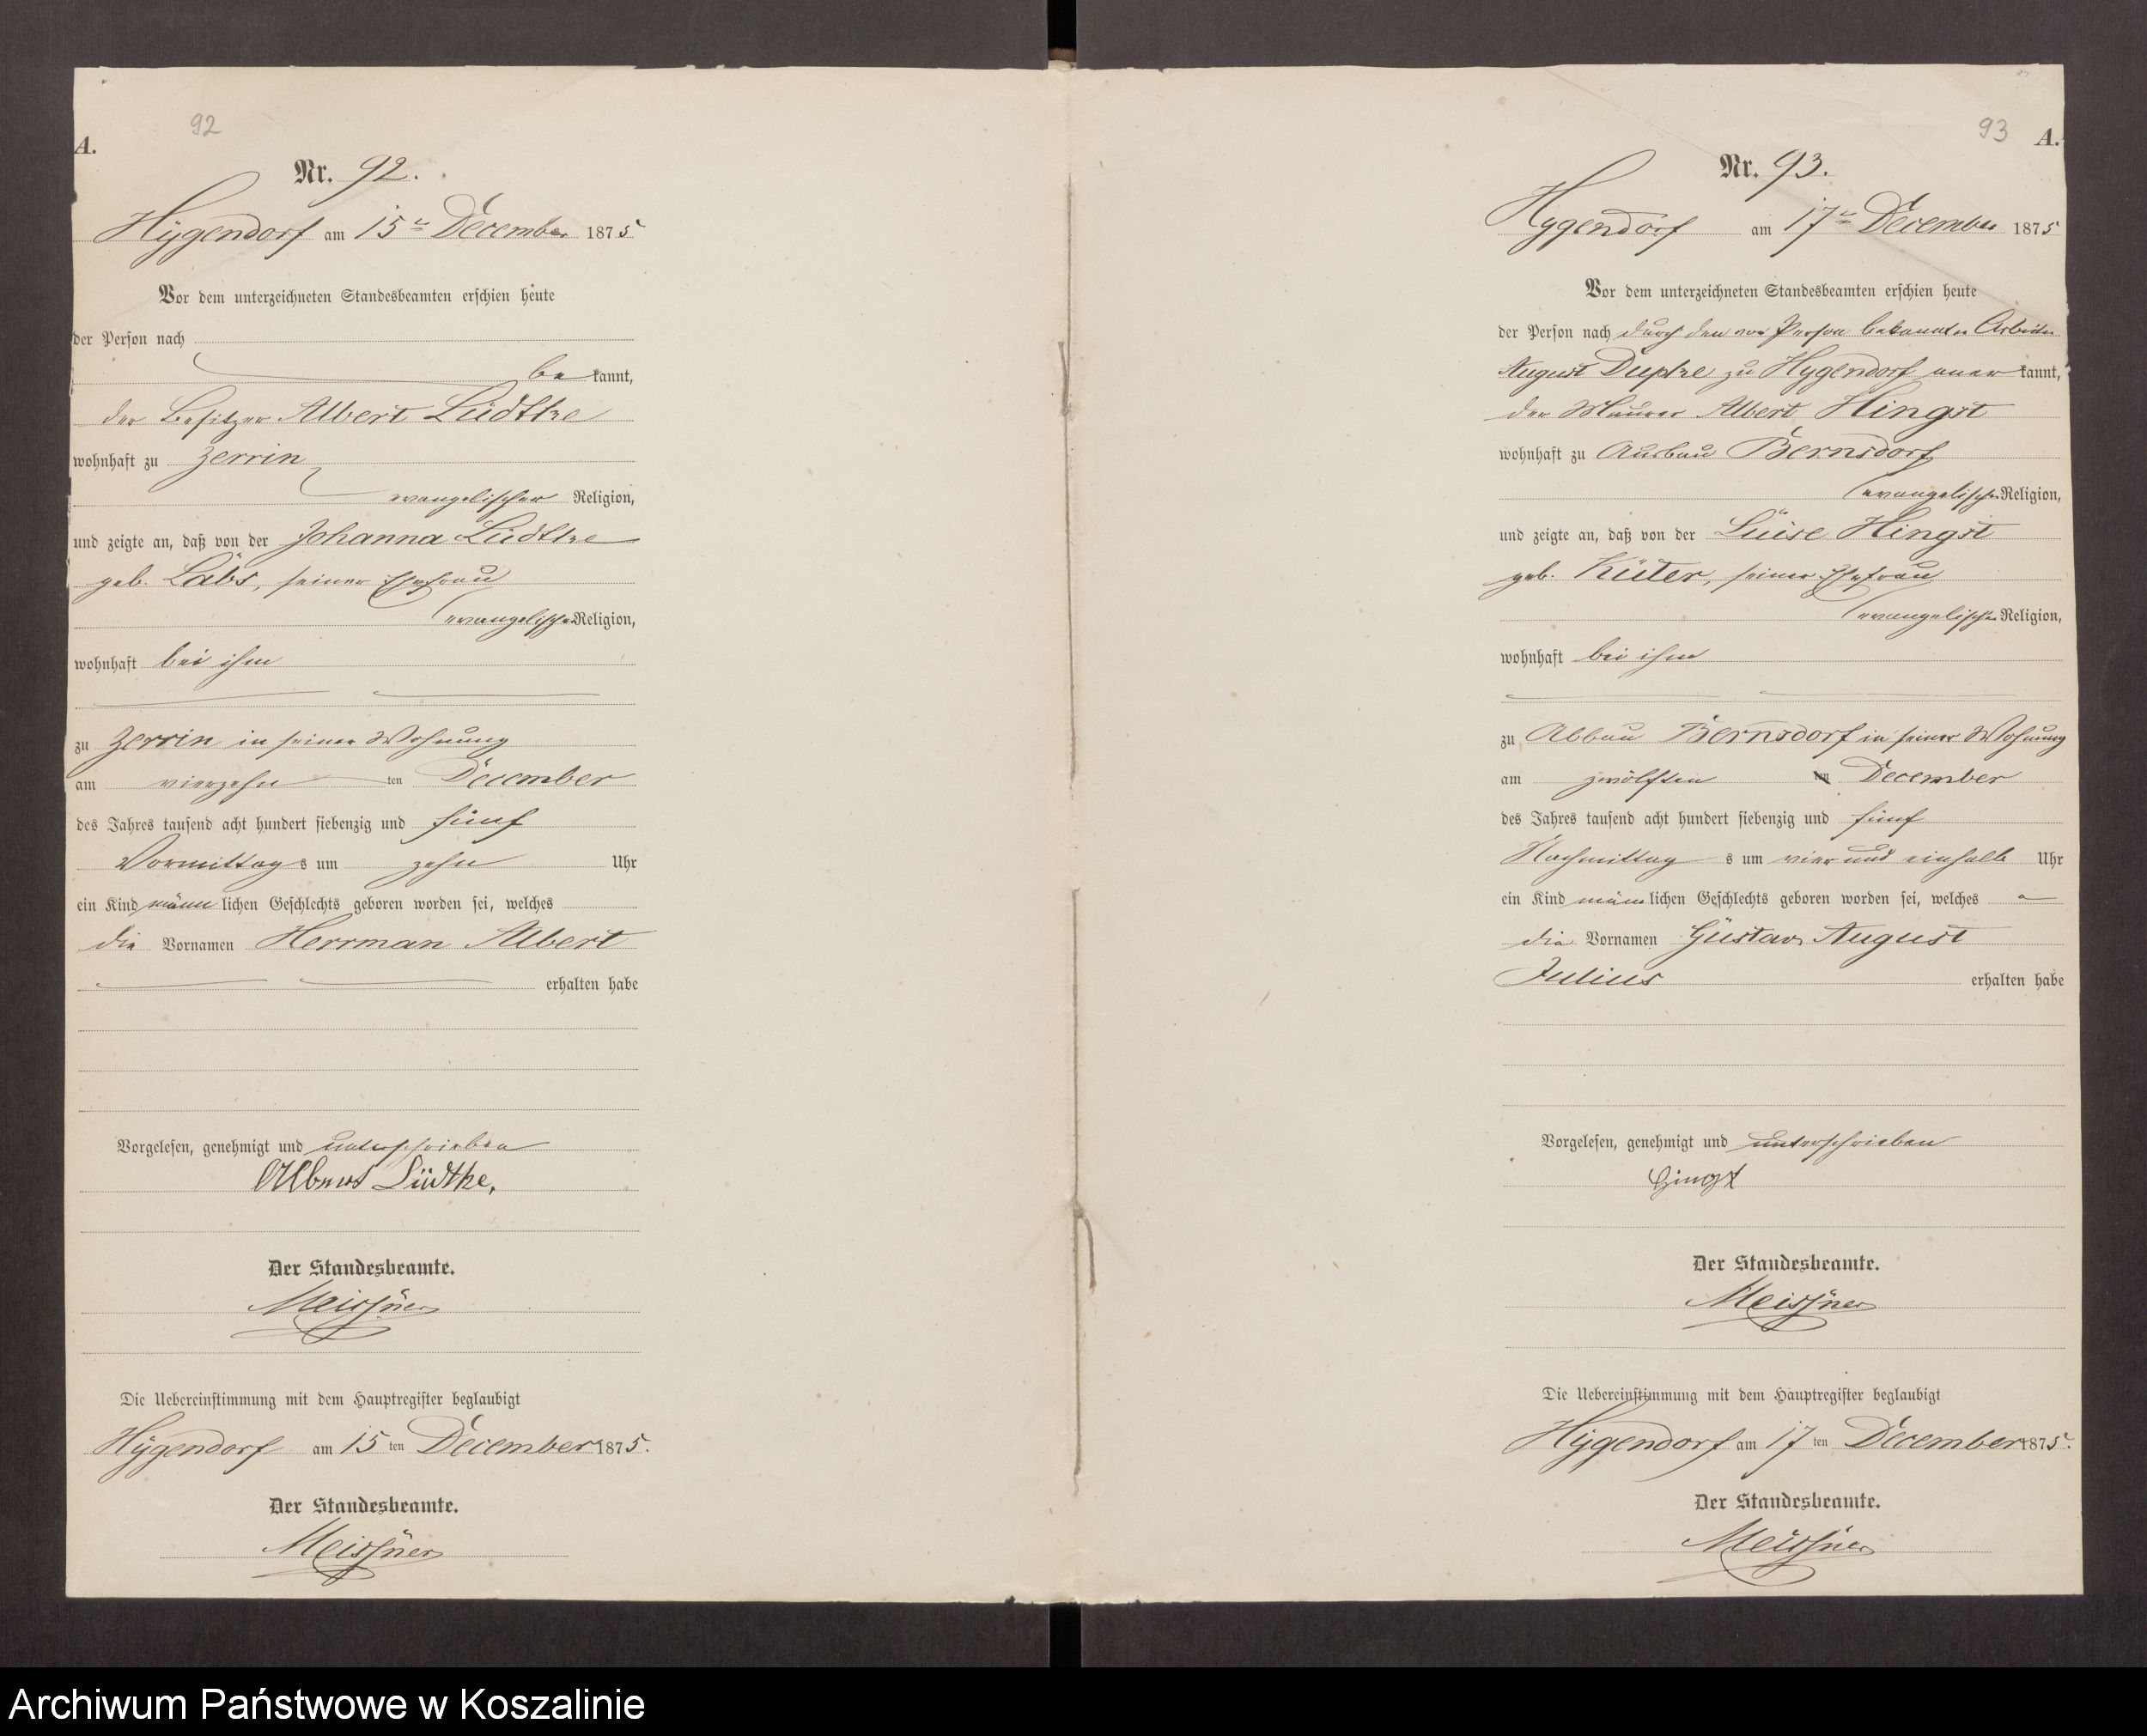 92
A.
Nr. 92.
Hÿgendorf am 15ten December 1875
Vor dem unterzeichneten Standesbeamten erschien heute
der Person nach
bekannt,
der Besitzer Albert Lüdtke
wohnhaft zu Zerrin
evangelischer Religion,
und zeigte an, daß von der Johanna Lüdtke
geb. Labs, seiner Ehefrau
evangelischer Religion,
wohnhaft bei ihm
zu Zerrin in seiner Wohnung
am vierzehn ten December
des Jahres tausend acht hundert siebenzig und fünf
Vormittags um zehn Uhr
ein Kind männlichen Geschlechts geboren worden sei, welches
die Vornamen Herrman Albert
erhalten habe
Vorgelesen, genehmigt und unterschrieben
Albert Lüdtke,
Der Standesbeamte.
Meissner
Die Uebereinstimmung mit dem Hauptregister beglaubigt
Hÿgendorf am 15 ten December 1875.
Der Standesbeamte.
Meissner
93
A.
Nr. 93.
Hygendorf am 17ten December 1875
Vor dem unterzeichneten Standesbeamten erschien heute
der Person nach durch den von Person bekannten Arbeiter
August Duptze zu Hygendorf anerkannt,
der Maurer Albert Hingst
wohnhaft zu Ausbau Bernsdorf
evangelischer Religion,
und zeigte an, daß von der Luise Hingst
geb. Küter, seiner Ehefrau
evangelischer Religion,
wohnhaft bei ihm
zu Abbau Bernsdorf in seiner Wohnung
am zwölften ten December
des Jahres tausend acht hundert siebenzig und fünf
Nachmittags um vier und einhalb Uhr
ein Kind männlichen Geschlechts geboren worden sei, welches
die Vornamen Gustav August
Julius erhalten habe
Vorgelesen, genehmigt und unterschrieben
Hingst
Der Standesbeamte.
Meissner
Die Uebereinstimmung mit dem Hauptregister beglaubigt
Hÿgendorf am 17 ten December 1875.
Der Standesbeamte.
Meissner
Archiwum Państwowe w Koszalinie